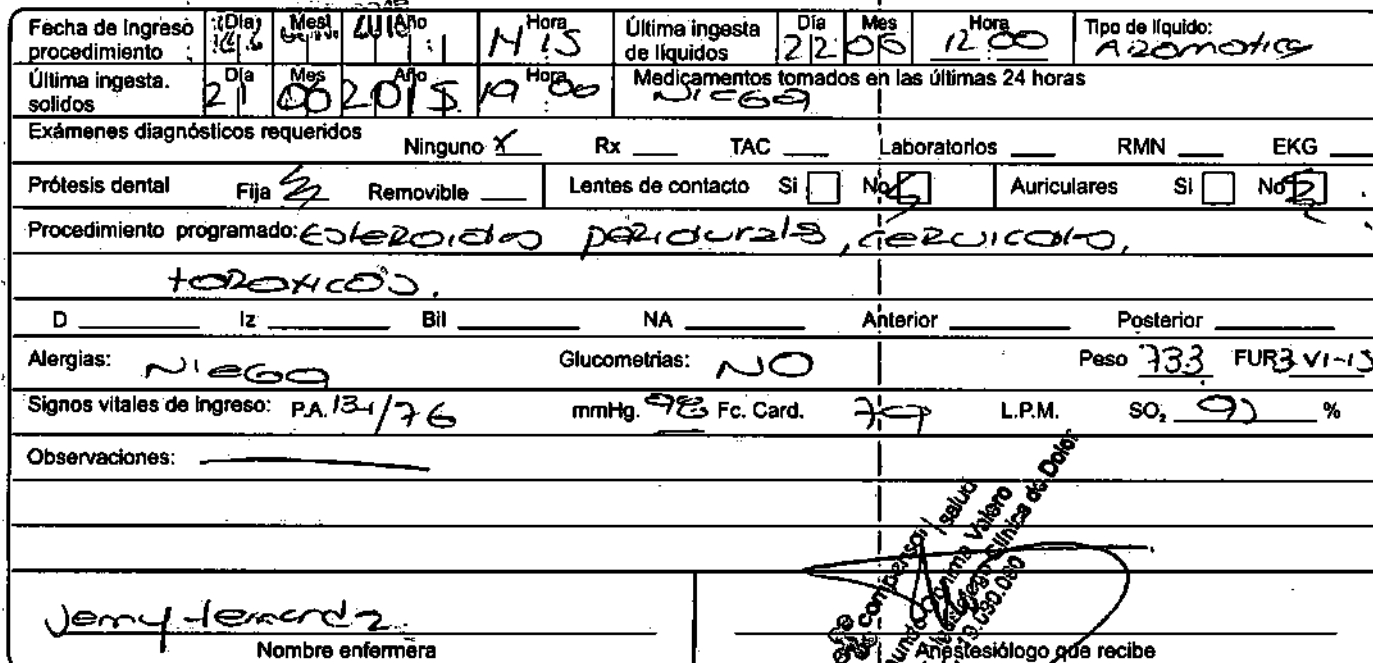 Fecha de Ingreso procedimiento Día Mes Año Hora Última ingesta de líquidos Día 22 Mes 06 Hora 12 00 Tipo de líquido: Aromatica
Última ingesta. solidos Día 21 Mes 06 Año 2015 Hora 19 00 Medicamentos tomados en las últimas 24 horas Niega
Exámenes diagnósticos requeridos Ninguno X Rx ___ TAC ___ Laboratorios ___ RMN ___ EKG ___
Prótesis dental Fija Removible ___ Lentes de contacto Si No Auriculares Si No
Procedimiento programado: Esteroides peridurals, cervicales,
toroxicos.
D ___ Iz ___ Bil ___ NA ___ Anterior ___ Posterior ___
Alergias: Niega Glucometrias: NO Peso 733 FUR 3 VI-15
Signos vitales de Ingreso: P.A. /76 mmHg. 98 Fc. Card. L.P.M. SO₂ %
Observaciones:
compensar salud
Valero
Clínica de Dolor
Jenny
Nombre enfermera Anestesiólogo que recibe